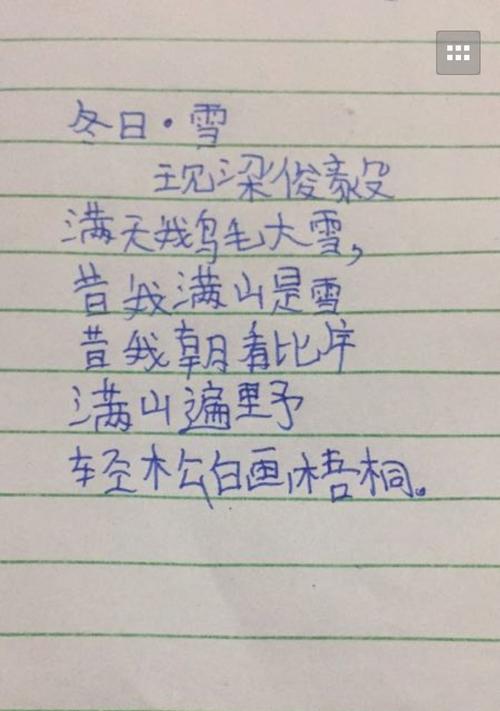 冬日·雪
现梁俊毅
满天鹅毛大雪,
昔我满山是雪
昔我朝看比岸
满山遍野
轻松白画梧桐。